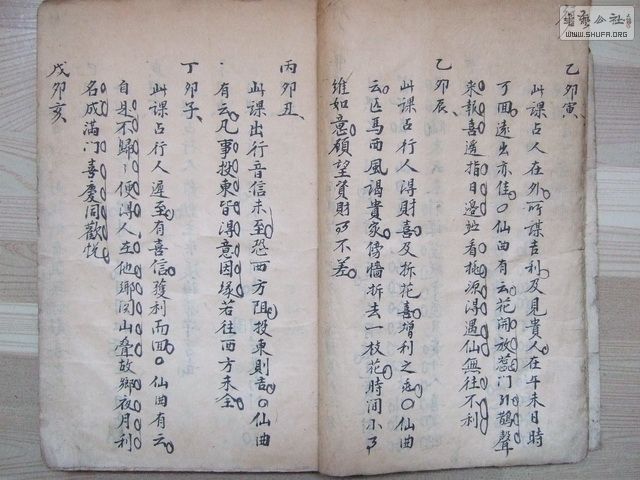 乙卯寅、
此課占人在外所謀吉利及見貴人在午未日時
可回遠出亦佳〇仙曲有云花開放蕊門引鵲聲
來報喜透指日邊地看桃源得遇仙無往不利
乙卯辰、
此課占行人得財喜及折花喜增利之兆〇仙曲
云匹馬西風謁貴家傍牆折去一枝花時間小了
維如意願望貲財可不差
丙卯丑、
此課出行音信未至恐西方阻投東則吉〇仙曲
有云凡事投東皆得意因緣若往西方未全
丁卯子、
此課占行人遲至有喜信獲利而回〇仙曲有云
自是不歸歸便得人在他鄉閃山聳故鄉夜月利
名成滿門喜慶同歡悅
戊卯亥、
WWW.SHUFA.ORG